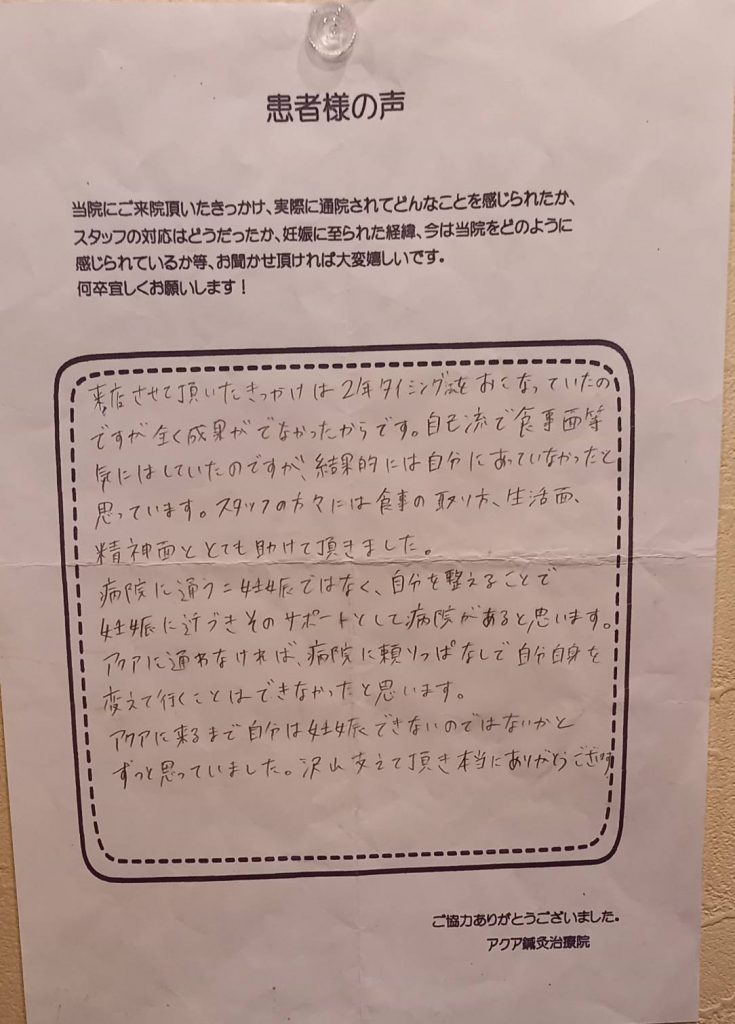 患者様の声
当院にご来院頂いたきっかけ、実際に通院されてどんなことを感じられたか、
スタッフの対応はどうだったか、妊娠に至られた経緯、今は当院をどのように
感じられているか等、お聞かせ頂ければ大変嬉しいです。
何卒宜しくお願いします!
来店させて頂いたきっかけは2年タイミング法をおこなっていたの
ですが全く成果がでなかったからです。自己流で食事面等
気にはしていたのですが、結果的には自分にあっていなかったと
思っています。スタッフの方々には食事の取り方、生活面、
精神面ととても助けて頂きました。
病院に通う=妊娠ではなく、自分を整えることで
妊娠に近づきそのサポートとして病院があると思います。
アクアに通わなければ、病院に頼りっぱなしで自分自身を
変えて行くことはできなかったと思います。
アクアに来るまで自分は妊娠できないのではないかと
ずっと思っていました。沢山支えて頂き本当にありがとうございます
ご協力ありがとうございました。
アクア鍼灸治療院